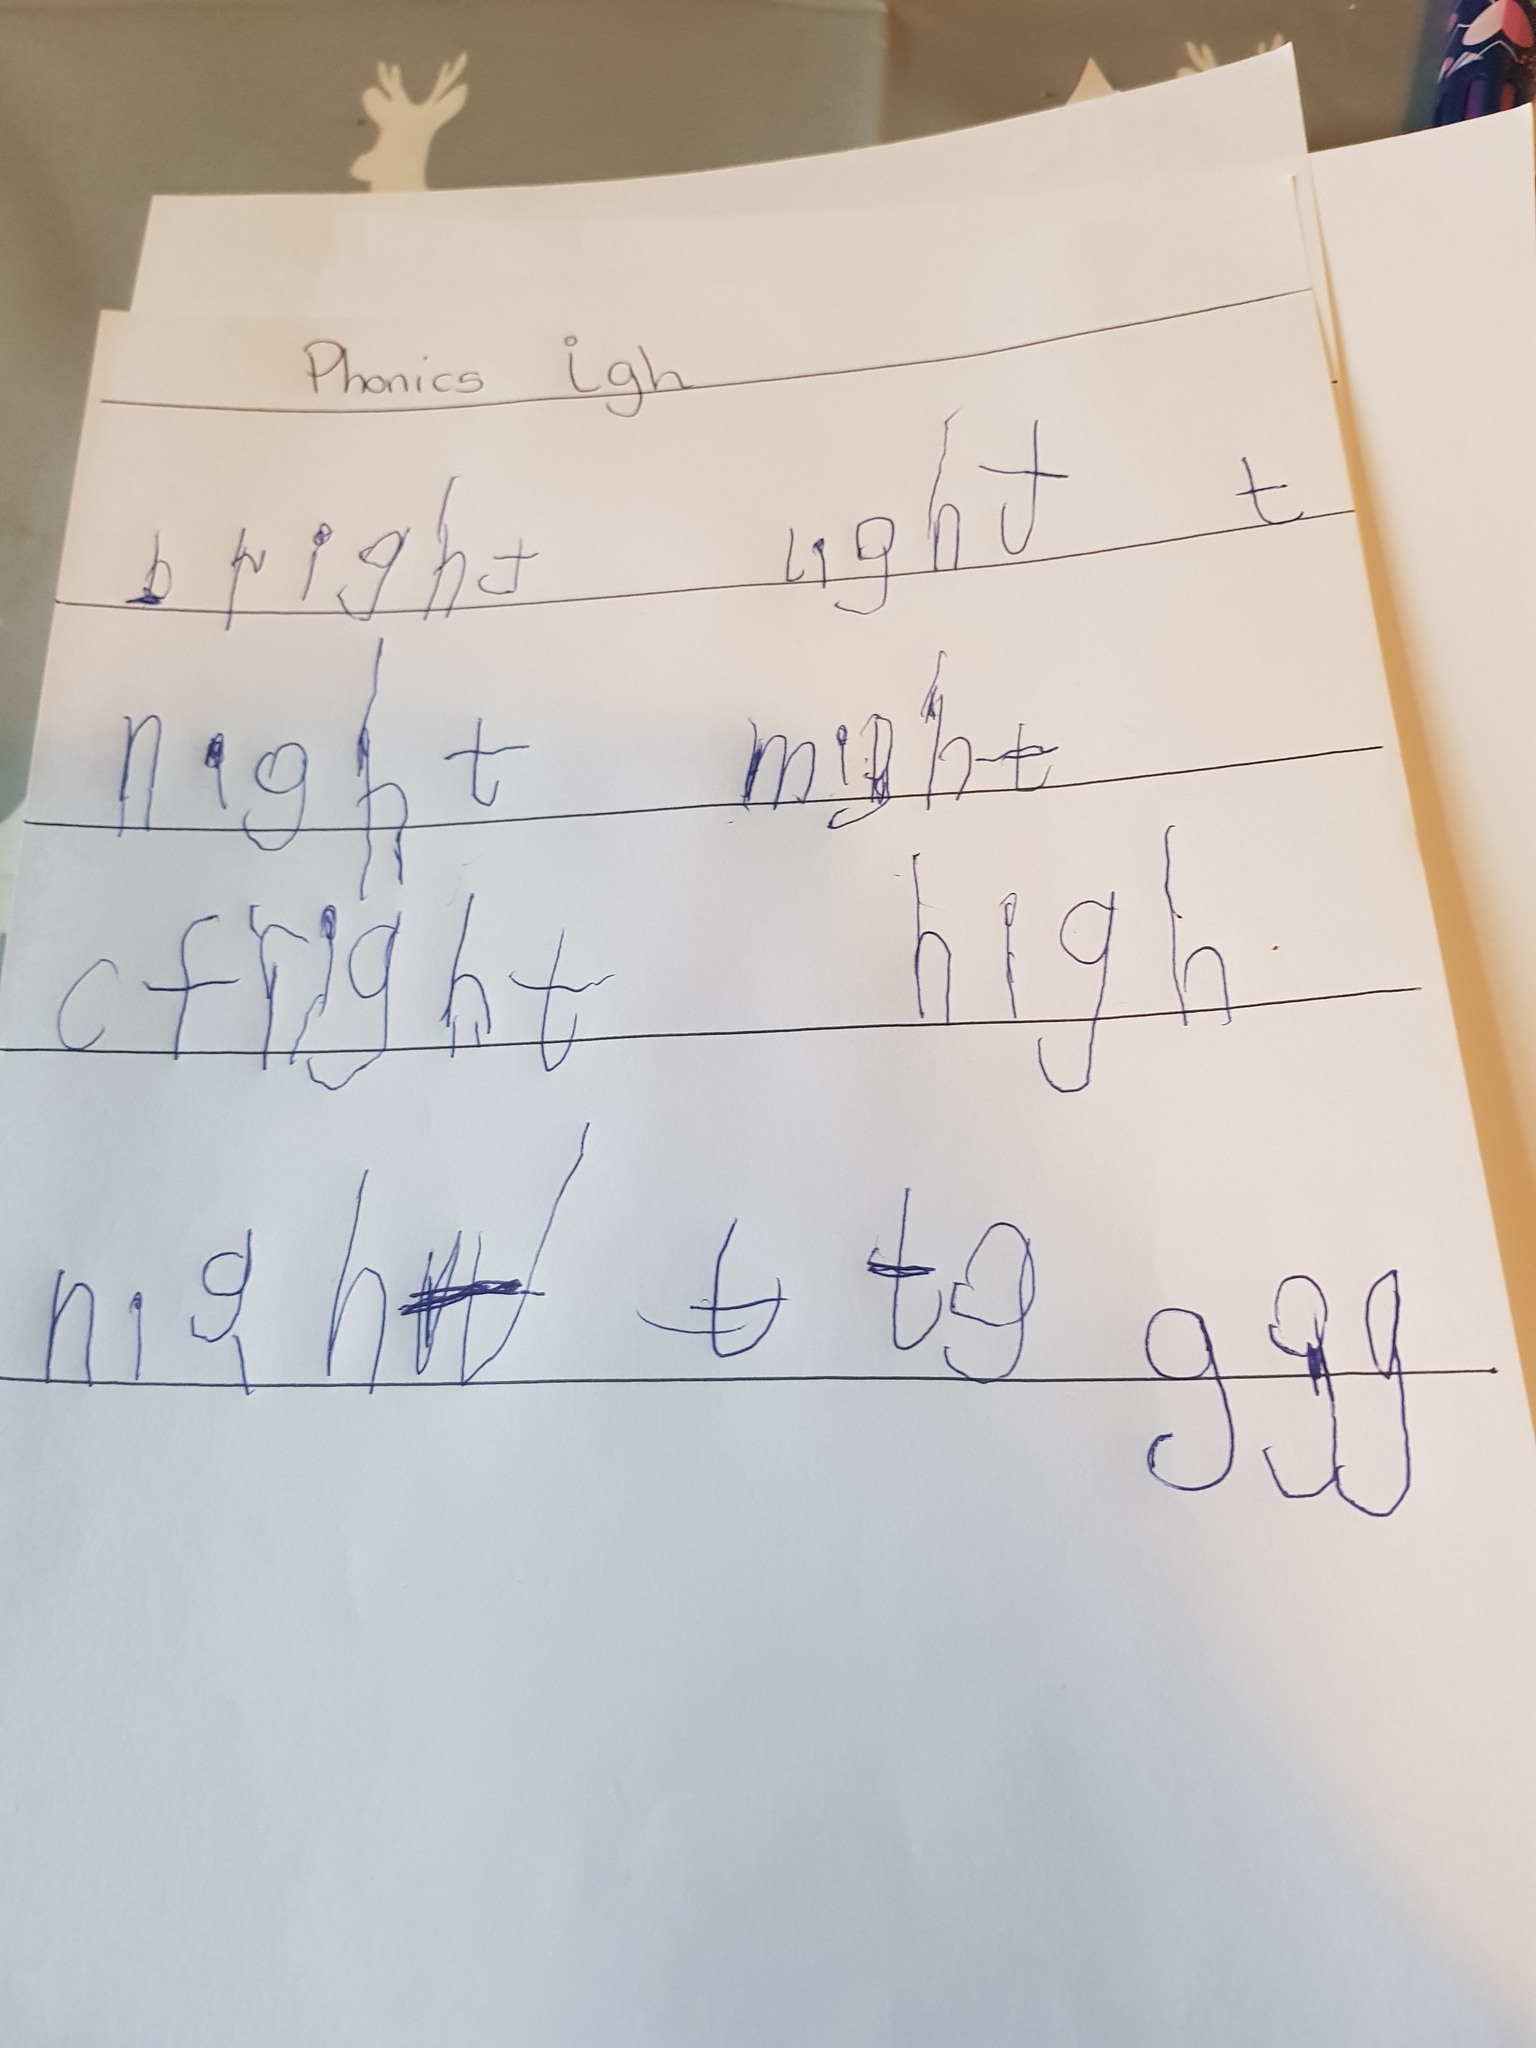 Phonics igh
bright light t
night might
c fright high
night t t g g g g